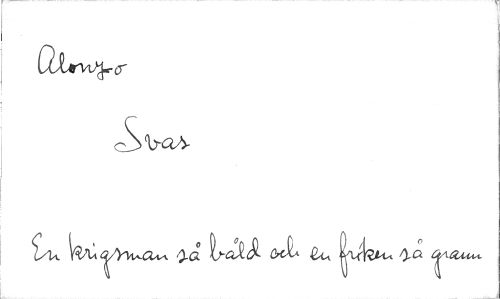 Alonzo
Svar
En krigsman så båld och en fröken så grann